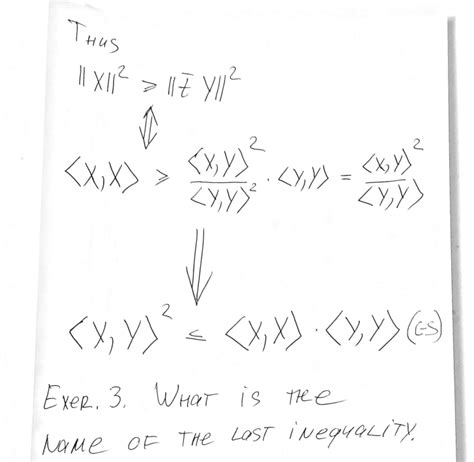 Thus
||X||² ≥ ||t̄ Y||²
⇕
⟨X,X⟩ ≥ ⟨X,Y⟩²/⟨Y,Y⟩² · ⟨Y,Y⟩ = ⟨X,Y⟩²/⟨Y,Y⟩
⇓
⟨X,Y⟩² ≤ ⟨X,X⟩ · ⟨Y,Y⟩ (C-S)
Exer. 3. What is the
name of the last inequality.